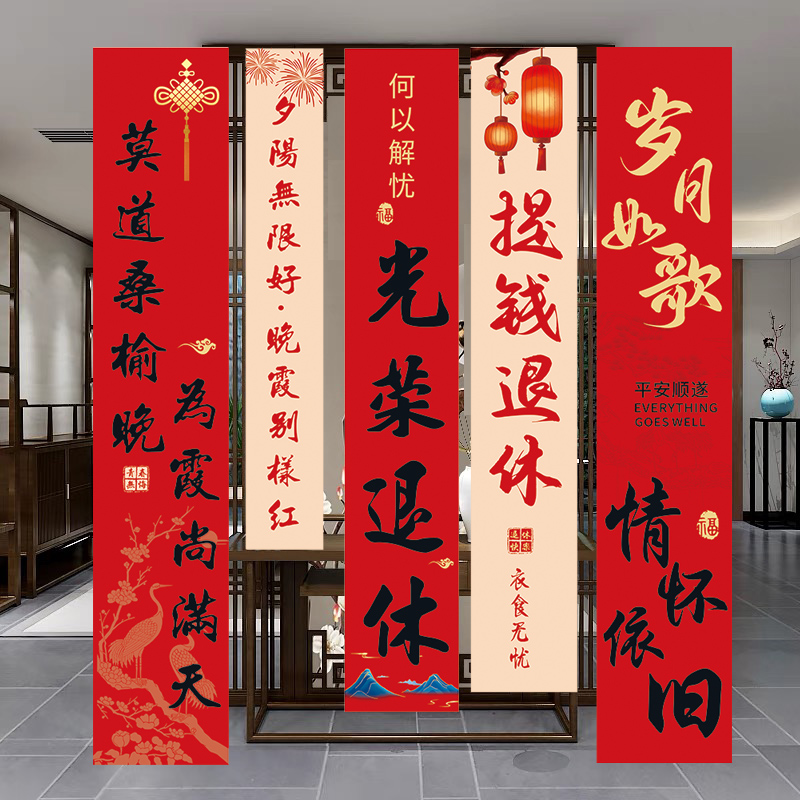 莫道桑榆晚
為霞尚滿天
夕陽無限好·晚霞别樣红
何以解忧
福
光荣退休
提钱退休
衣食无忧
岁月
如歌
平安顺遂
EVERYTHING
GOES WELL
福
情怀
依旧